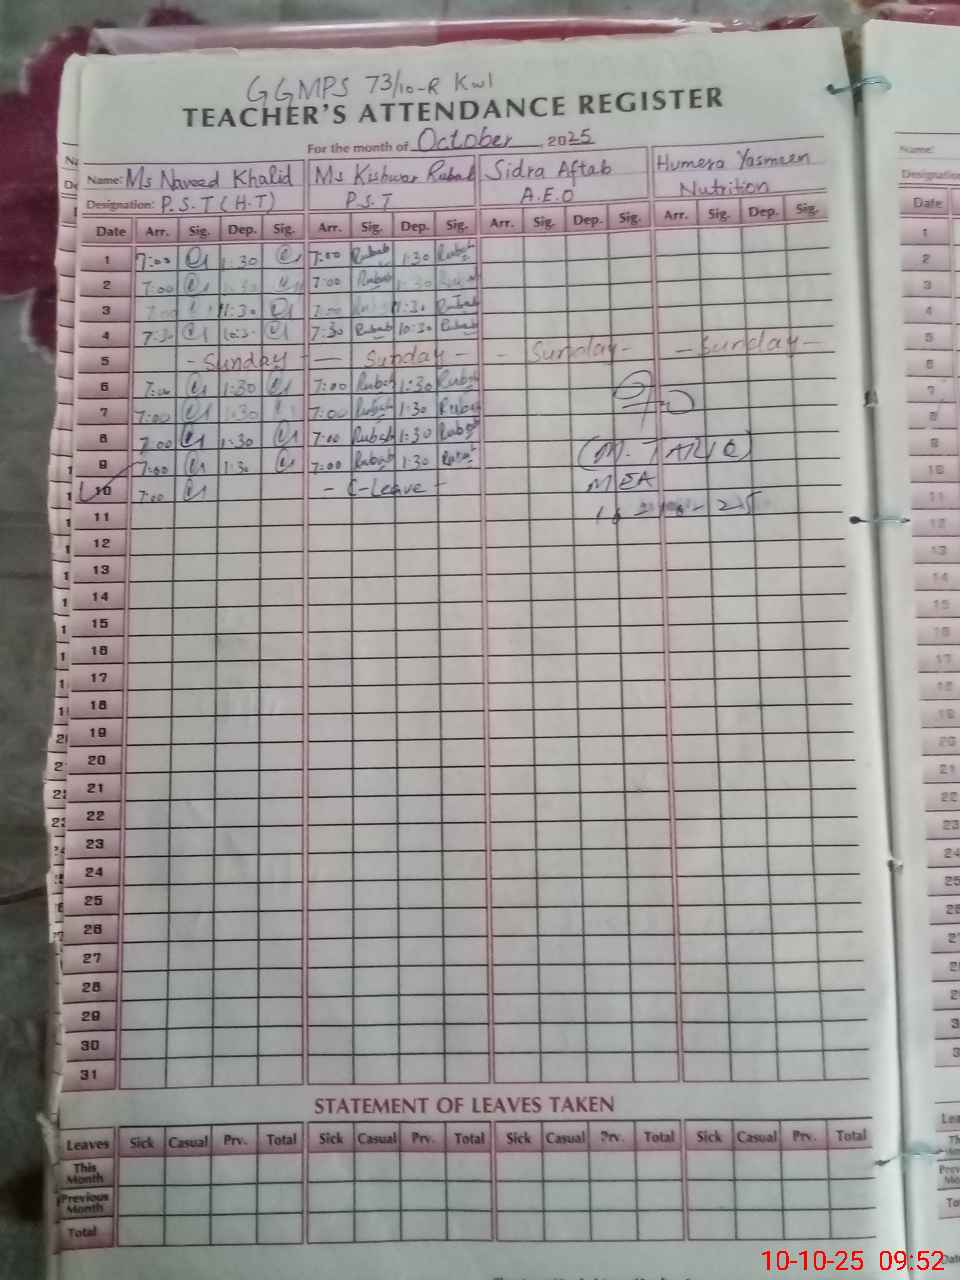 GGMPS 73/10-R Kwl
TEACHER'S ATTENDANCE REGISTER
For the month of October, 2025
Name: Ms Naveed Khalid Ms Kishwar Rubab Sidra Aftab Humera Yasmeen
Designation: P.S.T (H.T) P.S.T A.E.O Nutrition
Date Arr. Sig. Dep. Sig. Arr. Sig. Dep. Sig. Arr. Sig. Dep. Sig. Arr. Sig. Dep. Sig.
1 7:00 1:30 7:00 Rubab 1:30 Rubab
2 7:00 1:30 7:00 Rubab 1:30 Rubab
3 7:00 11:30 7:00 Rubab 11:30 Rubab
4 7:30 10:30 7:30 Rubab 10:30 Rubab
5 - Sunday - - Sunday - - Sunday - - Sunday -
6 7:00 1:30 7:00 Rubab 1:30 Rubab
7 7:00 1:30 7:00 Rubab 1:30 Rubab
8 7:00 1:30 7:00 Rubab 1:30 Rubab
9 7:00 1:30 7:00 Rubab 1:30 Rubab
(M. TARIQ)
10 7:00 - C-Leave -
MEA
11
12
13
14
15
16
17
18
19
20
21
22
23
24
25
26
27
28
29
30
31
STATEMENT OF LEAVES TAKEN
Leaves Sick Casual Prv. Total Sick Casual Prv. Total Sick Casual Prv. Total Sick Casual Prv. Total
This Month
Previous Month
Total
Name:
Designation
Date
10-10-25 09:52